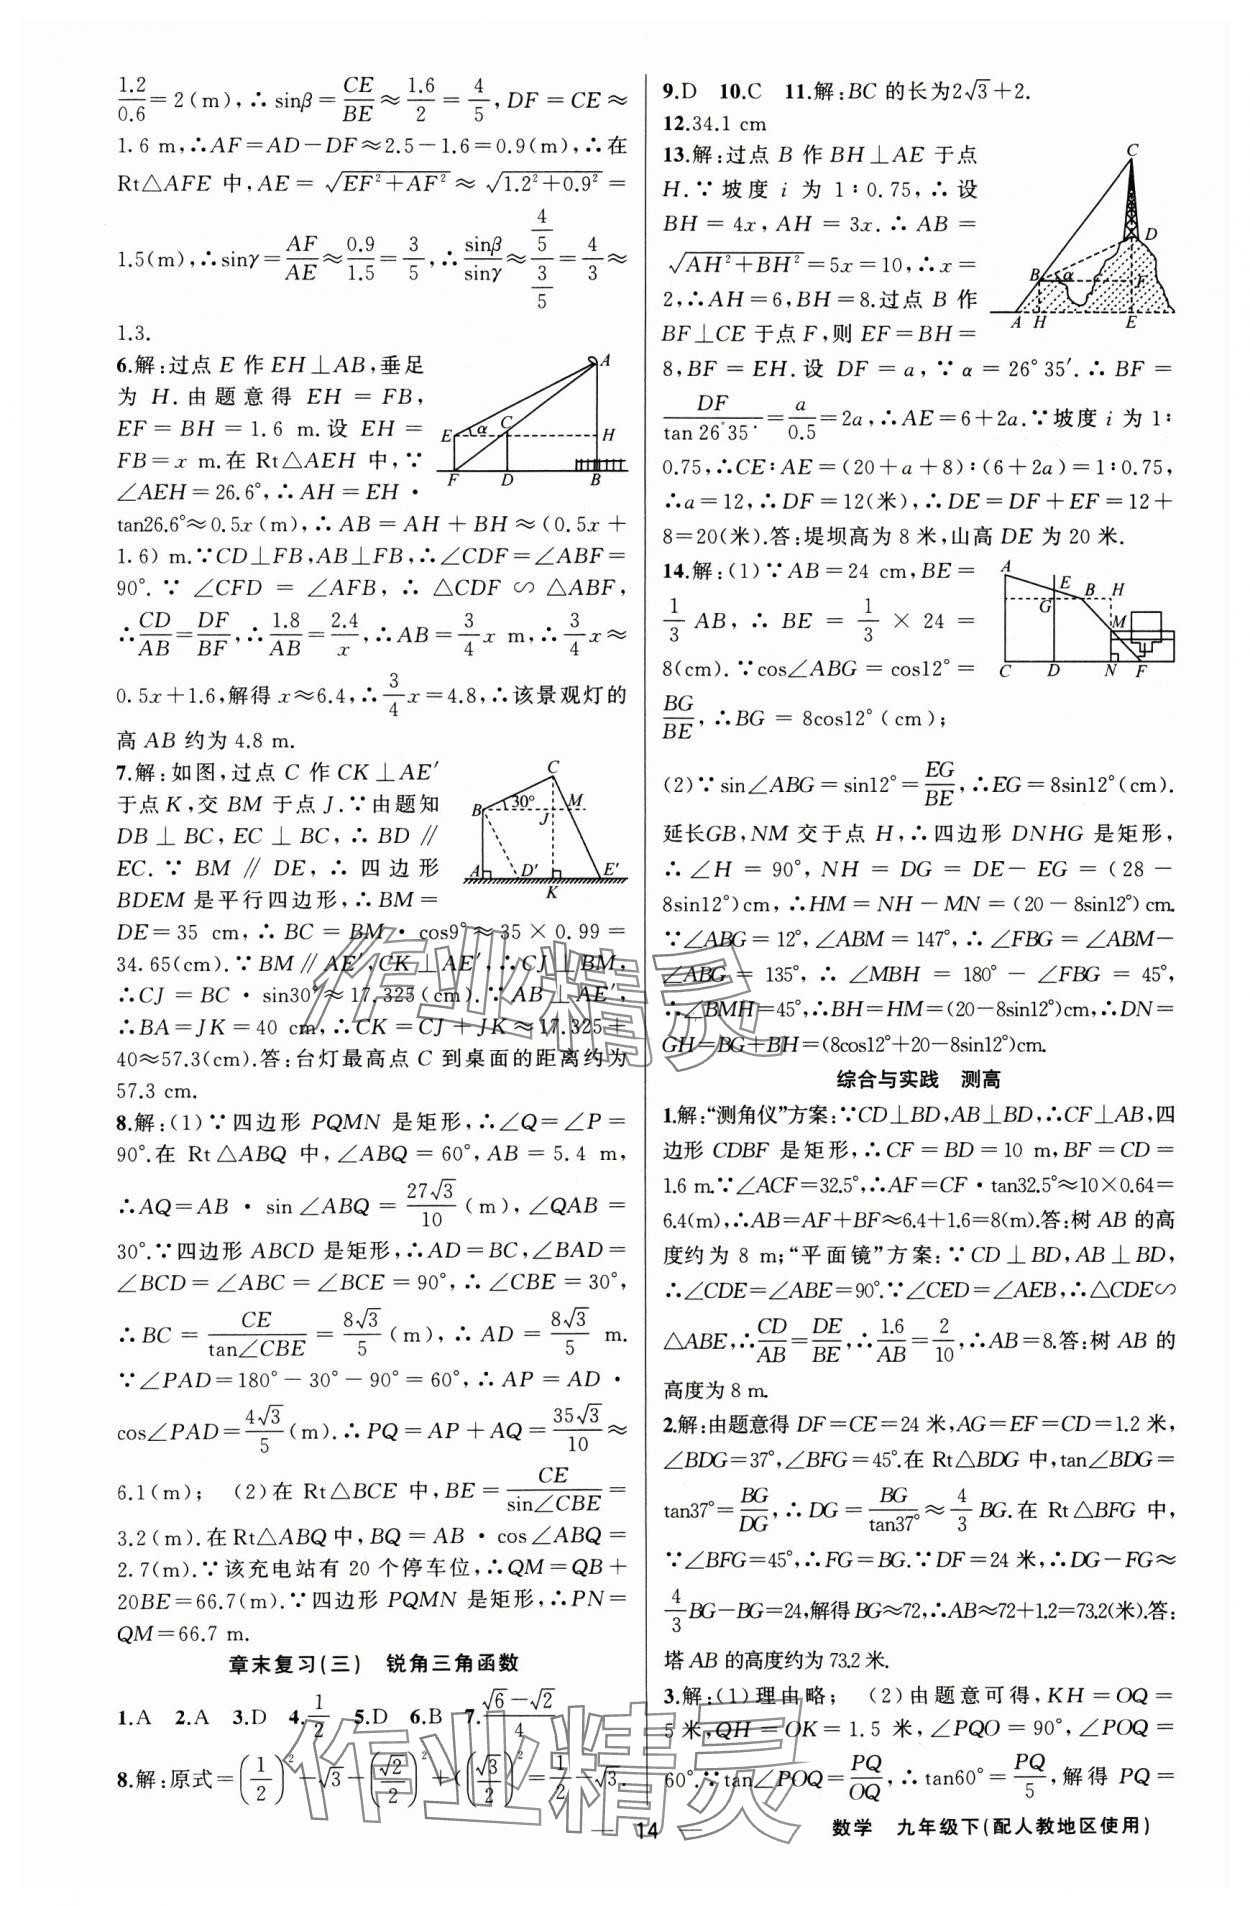 1.2/0.6=2(m),∴sinβ=CE/BE≈1.6/2=4/5,DF=CE≈
1.6 m,∴AF=AD-DF≈2.5-1.6=0.9(m),∴在
Rt△AFE 中,AE=√(EF²+AF²)≈√(1.2²+0.9²)=
1.5(m),∴sinγ=AF/AE≈0.9/1.5=3/5,∴sinβ/sinγ=(4/5)/(3/5)=4/3≈
1.3.
6.解:过点 E 作 EH⊥AB,垂足
为 H.由题意得 EH=FB,
EF=BH=1.6 m.设 EH=
FB=x m.在 Rt△AEH 中,∵
∠AEH=26.6°,∴AH=EH·
tan26.6°≈0.5x(m),∴AB=AH+BH≈(0.5x+
1.6) m.∵CD⊥FB,AB⊥FB,∴∠CDF=∠ABF=
90°.∵∠CFD=∠AFB,∴△CDF∽△ABF,
∴CD/AB=DF/BF,∴1.8/AB=2.4/x,∴AB=3/4x m,∴3/4x≈
0.5x+1.6,解得 x≈6.4,∴3/4x=4.8,∴该景观灯的
高 AB 约为 4.8 m.
A
E
α
C
H
F
D
B
7.解:如图,过点 C 作 CK⊥AE′
于点 K,交 BM 于点 J.∵由题知
DB⊥BC,EC⊥BC,∴BD∥
EC.∵BM∥DE,∴四边形
BDEM 是平行四边形,∴BM=
DE=35 cm,∴BC=BM·cos9°≈35×0.99=
34.65(cm).∵BM∥AE′,CK⊥AE′,∴CJ⊥BM,
∴CJ=BC·sin30°≈17.325(cm).∵AB⊥AE′,
∴BA=JK=40 cm,∴CK=CJ+JK≈17.325+
40≈57.3(cm).答:台灯最高点 C 到桌面的距离约为
57.3 cm.
C
B
30°
M
J
A
D′
E′
K
8.解:(1)∵四边形 PQMN 是矩形,∴∠Q=∠P=
90°.在 Rt△ABQ 中,∠ABQ=60°,AB=5.4 m,
∴AQ=AB·sin∠ABQ=27√3/10(m),∠QAB=
30°.∵四边形 ABCD 是矩形,∴AD=BC,∠BAD=
∠BCD=∠ABC=∠BCE=90°,∴∠CBE=30°,
∴BC=CE/tan∠CBE=8√3/5(m),∴AD=8√3/5 m.
∵∠PAD=180°-30°-90°=60°,∴AP=AD·
cos∠PAD=4√3/5(m).∴PQ=AP+AQ=35√3/10≈
6.1(m); (2)在 Rt△BCE 中,BE=CE/sin∠CBE=
3.2(m).在Rt△ABQ中,BQ=AB·cos∠ABQ=
2.7(m).∵该充电站有 20 个停车位,∴QM=QB+
20BE=66.7(m).∵四边形 PQMN 是矩形,∴PN=
QM=66.7 m.
章末复习(三) 锐角三角函数
1.A 2.A 3.D 4.1/2 5.D 6.B 7.(√6-√2)/4
8.解:原式=(1/2)²-√3-(√2/2)²+(√3/2)²=1/2-√3.
9.D 10.C 11.解:BC 的长为2√3+2.
12.34.1 cm
13.解:过点 B 作 BH⊥AE 于点
H.∵坡度 i 为 1∶0.75,∴设
BH=4x,AH=3x.∴AB=
√(AH²+BH²)=5x=10,∴x=
2,∴AH=6,BH=8.过点 B 作
BF⊥CE于点 F,则 EF=BH=
8,BF=EH.设 DF=a,∵α=26°35′.∴BF=
DF/tan26°35′=a/0.5=2a,∴AE=6+2a.∵坡度 i 为 1∶
0.75,∴CE∶AE=(20+a+8)∶(6+2a)=1∶0.75,
∴a=12,∴DF=12(米),∴DE=DF+EF=12+
8=20(米).答:堤坝高为 8 米,山高 DE 为 20 米.
C
D
B
α
F
A
H
E
14.解:(1)∵AB=24 cm,BE=
1/3 AB,∴BE=1/3×24=
8(cm).∵cos∠ABG=cos12°=
BG/BE,∴BG=8cos12°(cm);
A
E
G
B
H
M
C
D
N
F
(2)∵sin∠ABG=sin12°=EG/BE,∴EG=8sin12°(cm).
延长GB,NM 交于点 H,∴四边形 DNHG 是矩形,
∴∠H=90°,NH=DG=DE-EG=(28-
8sin12°)cm,∴HM=NH-MN=(20-8sin12°)cm.
∵∠ABG=12°,∠ABM=147°,∴∠FBG=∠ABM-
∠ABG=135°,∴∠MBH=180°-∠FBG=45°,
∴∠BMH=45°,∴BH=HM=(20-8sin12°)cm,∴DN=
GH=BG+BH=(8cos12°+20-8sin12°)cm.
综合与实践 测高
1.解:“测角仪”方案:∵CD⊥BD,AB⊥BD,∴CF⊥AB,四
边形 CDBF 是矩形,∴CF=BD=10 m,BF=CD=
1.6 m.∵∠ACF=32.5°,∴AF=CF·tan32.5°≈10×0.64=
6.4(m),∴AB=AF+BF≈6.4+1.6=8(m).答:树 AB 的高
度约为 8 m;“平面镜”方案:∵CD⊥BD,AB⊥BD,
∴∠CDE=∠ABE=90°.∵∠CED=∠AEB,∴△CDE∽
△ABE,∴CD/AB=DE/BE,∴1.6/AB=2/10,∴AB=8.答:树 AB 的
高度为 8 m.
2.解:由题意得 DF=CE=24 米,AG=EF=CD=1.2 米,
∠BDG=37°,∠BFG=45°.在 Rt△BDG 中,tan∠BDG=
tan37°=BG/DG,∴DG=BG/tan37°≈4/3BG.在 Rt△BFG 中,
∵∠BFG=45°,∴FG=BG.∵DF=24 米,∴DG-FG≈
4/3BG-BG=24,解得 BG≈72,∴AB≈72+1.2=73.2(米).答:
塔 AB 的高度约为 73.2 米.
3.解:(1)理由略; (2)由题意可得,KH=OQ=
5 米,QH=OK=1.5 米,∠PQO=90°,∠POQ=
60°.∵tan∠POQ=PQ/OQ,∴tan60°=PQ/5,解得 PQ=
作业精灵
作业精灵
— 14 —
数学 九年级下(配人教地区使用)